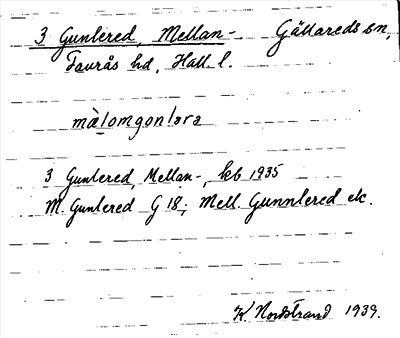 3 Gunlered, Mellan- Gällareds sn,
Faurås hd, Hall. l.
mæ̀lomgonlərə
3 Gunlered, Mellan-, kb 1935
M. Gunlered G 18; Mell. Gunnlered ek.
K. Nordstrand 1939.